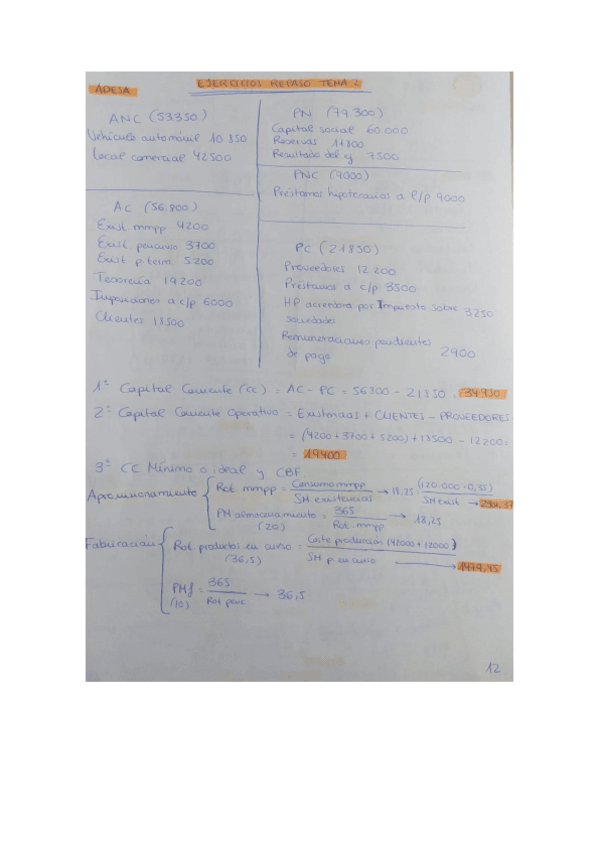 EJERCICIOS REPASO TEMA 2
ADESA
ANC (53350)
Vehículo automóvil 10 850
Local comercial 42500
AC (56.800)
Exist. mmpp 4200
Exist. pcurso 3700
Exist. p.term. 5200
Tesorería 19200
Imposiciones a c/p 6000
Clientes 18500
PN (79.300)
Capital social 60.000
Reservas 11800
Resultado del ej 7500
PNC (9000)
Préstamos hipotecarios a l/p 9000
PC (21850)
Proveedores 12 200
Préstamos a c/p 3500
HP acreedora por Impuesto sobre sociedades 3250
Remuneraciones pendientes
de pago 2900
1º Capital Corriente (CC) = AC - PC = 56800 - 21850 = 34.950
2º Capital Corriente Operativo = Existencias + CLIENTES - PROVEEDORES
= (4200 + 3700 + 5200) + 18500 - 12200 =
= 19400
3º CC Mínimo o ideal y CBF
Aprovisionamiento
Rot. mmpp = Consumo mmpp / SM. existencias → 18,25 = (120.000 · 0,35) / SM exist. →
PM almacenamiento = 365 / Rot. mmpp → 18,25
(20)
Fabricación
Rot. productos en curso = Coste producción (42000 + 12000) / SM p. en curso → 1479,45
(36,5)
PMf = 365 / Rot pcurc → 36,5
(10)
12